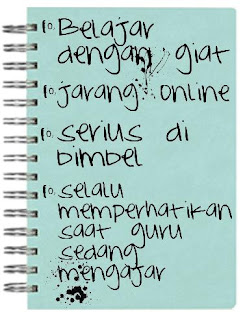 10. Belajar
dengan giat
10. jarang online
10. serius di
bimbel
10. selalu
memperhatikan
saat guru
sedang
mengajar